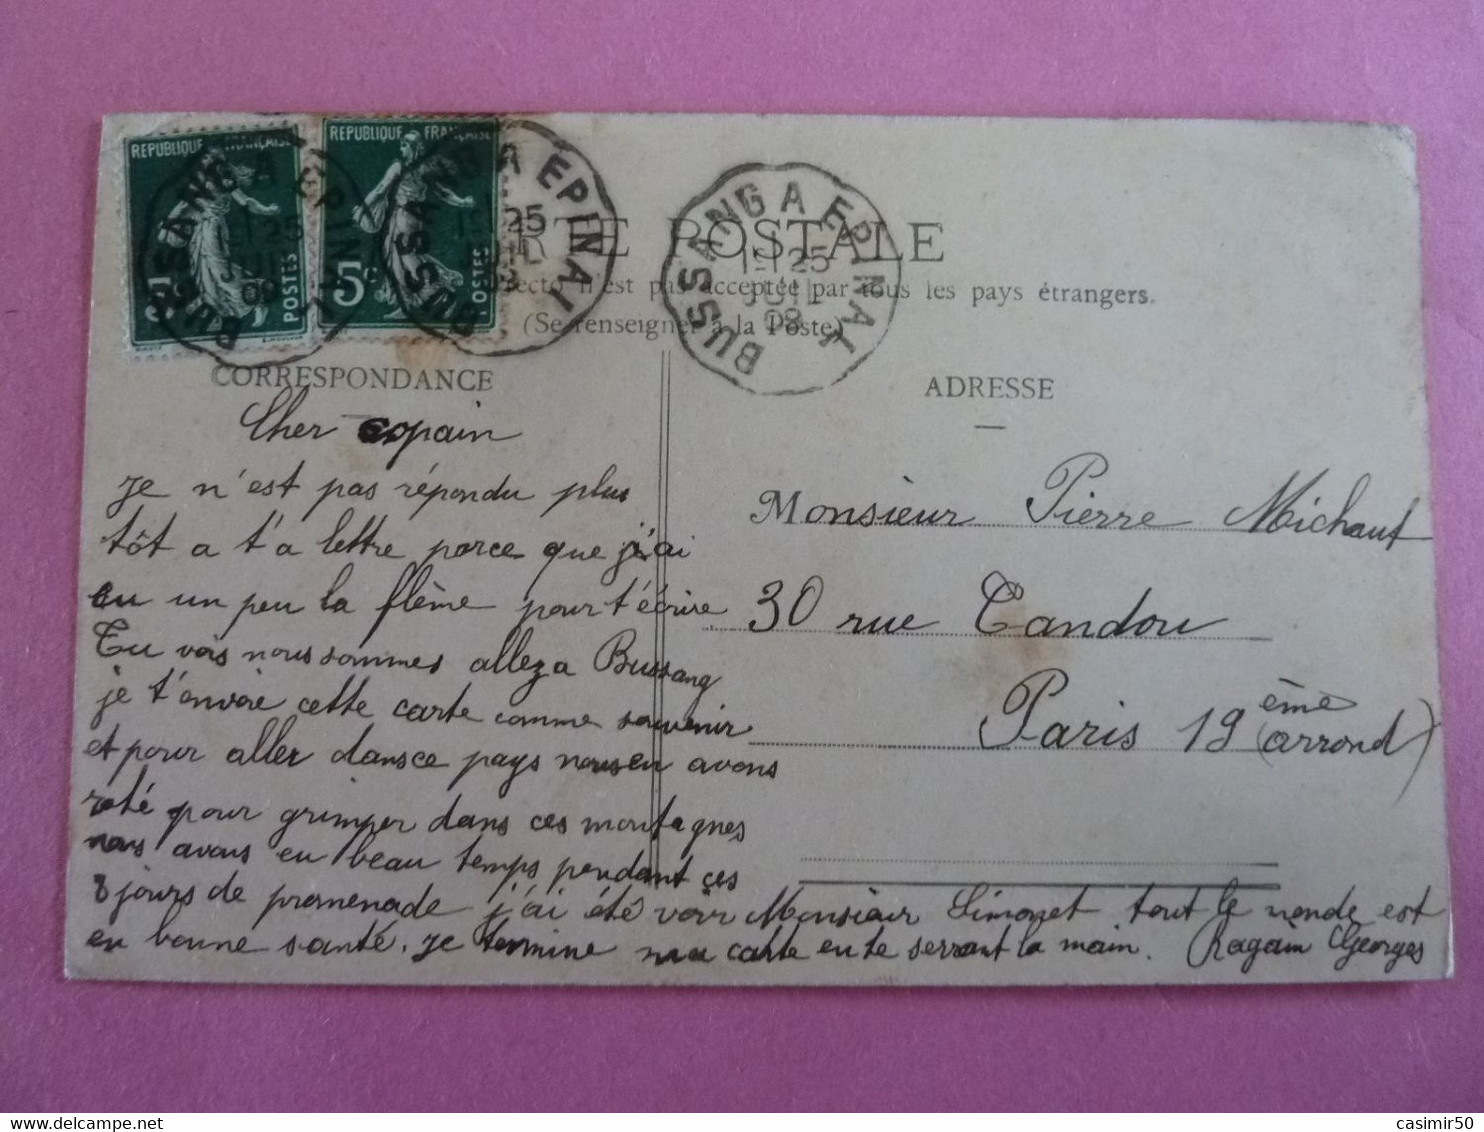 REPUBLIQUE FRANÇAISE
POSTES
REPUBLIQUE FRANÇAISE
5c
POSTES
BUSSANG A EPINAL
25
JUIL
09
BUSSANG A EPINAL
25
BUSSANG A EPINAL
1E 25
JUIL
08
RTE POSTALE
recto n'est pas acceptée par tous les pays étrangers.
(Se renseigner à la Poste)
CORRESPONDANCE
Cher copain
Je n'est pas répondu plus
tôt a t'a lettre parce que j'ai
eu un peu la flème pour t'écrire
Tu vois nous sommes allez a Bussang
je t'envoie cette carte comme souvenir
et pour aller dans ce pays nous en avons
roté pour grimper dans ces montagnes
nous avons eu beau temps pendant ces
8 jours de promenade j'ai été voir Monsieur Simonet tout le monde est
en bonne santé. Je termine ma carte en te serrant la main. Ragain Georges
ADRESSE
Monsieur Pierre Michaut
30 rue Tandou
Paris 19 ème (arrond)
casimir50